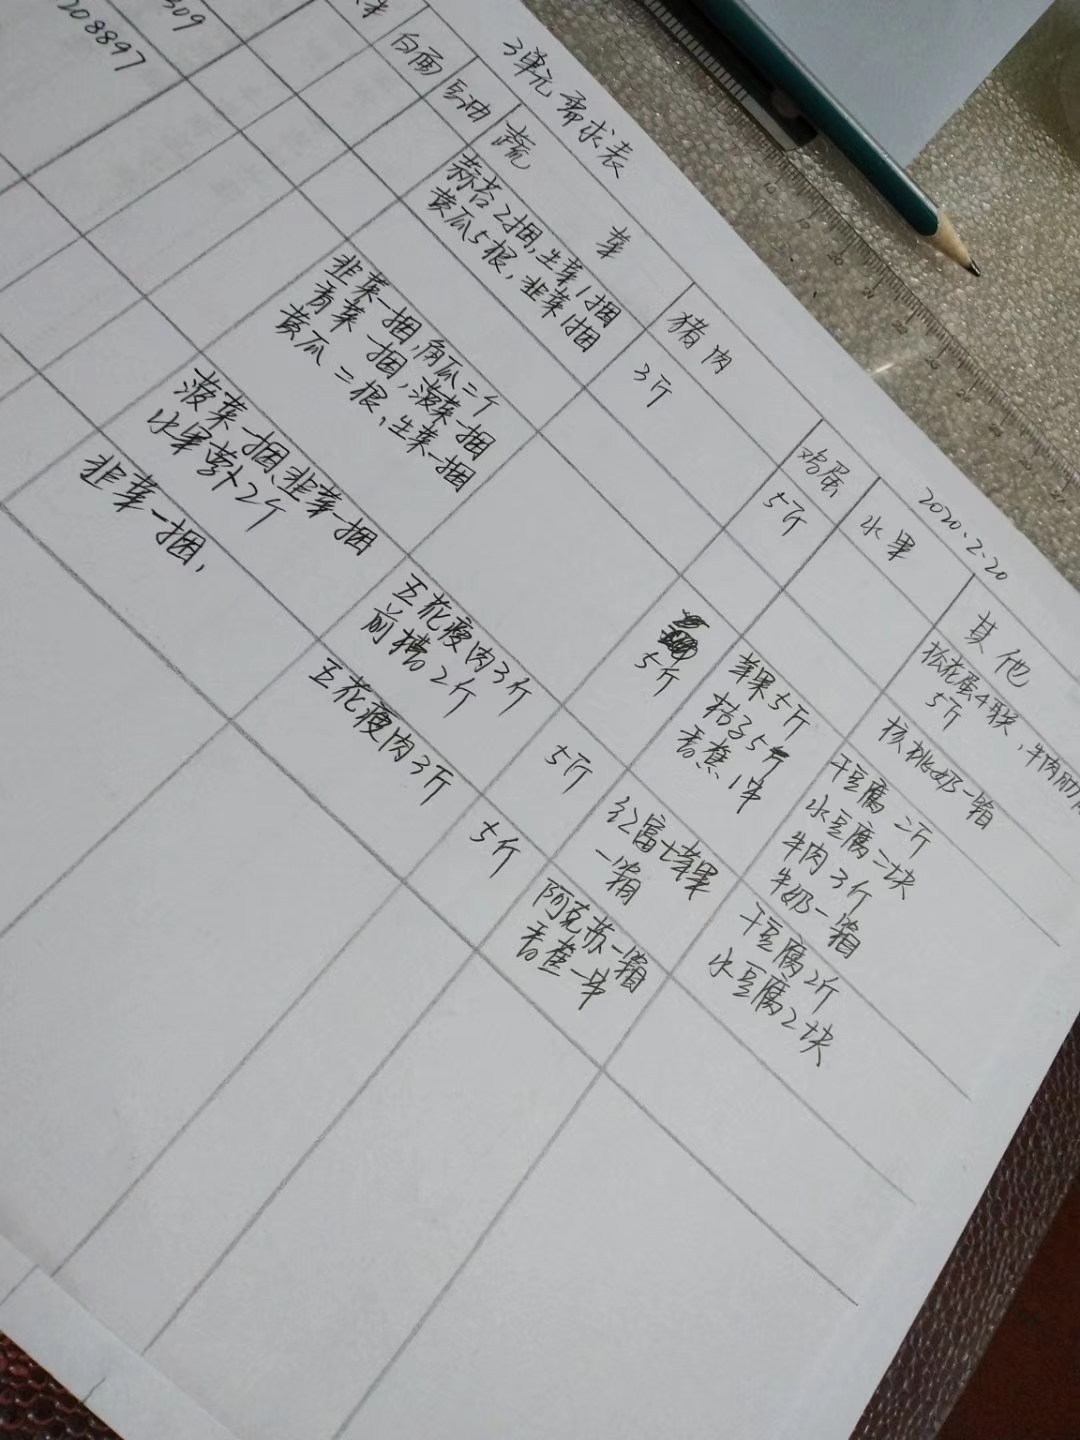 3单元需求表
2020.2.20
白面
豆油
蔬菜
猪肉
鸡蛋
水果
其他
309
208897
蒜苔2捆,生菜1捆
黄瓜5根,韭菜1捆
3斤
5斤
松花蛋4联,牛肉
5斤
核桃奶一箱
韭菜一捆,角瓜二个
青菜一捆,菠菜一捆
黄瓜二根,生菜一捆
5斤
苹果5斤
桔子5斤
香蕉1串
干豆腐二斤
水豆腐二块
牛肉3斤
牛奶一箱
菠菜一捆、韭菜一捆
水果萝卜2个
五花瘦肉3斤
前槽2斤
5斤
红富士苹果
一箱
干豆腐2斤
水豆腐2块
韭菜一捆,
五花瘦肉3斤
5斤
阿克苏一箱
香蕉一串